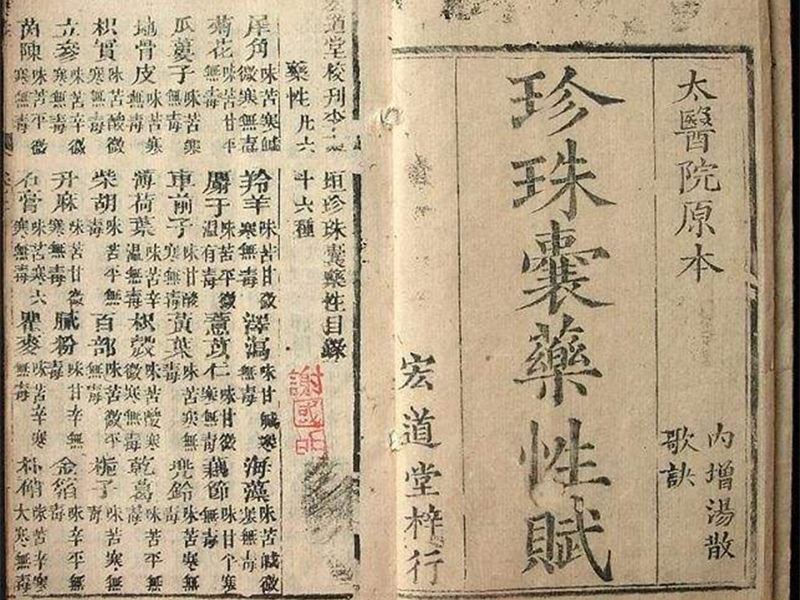 太醫院原本
內增湯散
歌訣
珍珠囊藥性賦
宏道堂梓行
宏道堂校刊李
垣珍珠囊藥性目錄
藥性凡六十六種
謝國
犀角 味苦寒鹹微寒無毒 羚羊 味苦甘微寒無毒 澤瀉 味甘鹹寒無毒 海藻 味苦鹹微寒無毒
菊花 味苦甘平無毒 屬于 味苦平微温有毒 薏苡仁 味甘微寒無毒 藕節 味甘个寒無毒
瓜蔞子 味苦寒無毒 車前子 味甘酸寒無毒 黃葉 味苦寒無毒 兜鈴 味苦寒無毒
地骨皮 味苦寒無毒 薄荷葉 味苦辛温無毒 枳殼 味苦酸微寒無毒 乾葛 味苦平無毒
枳實 味苦酸微寒無毒 柴胡 味苦平無毒 百部 味苦微平無毒 梔子 味苦寒無毒
立參 味苦微寒無毒 升麻 味苦甘微寒無毒 膩粉 味甘辛無毒 金箔 味辛平無毒
茵陳 味苦平微寒無毒 石膏 味苦寒六寒無毒 瞿麥 味苦辛寒無毒 朴硝 味苦辛大寒無毒